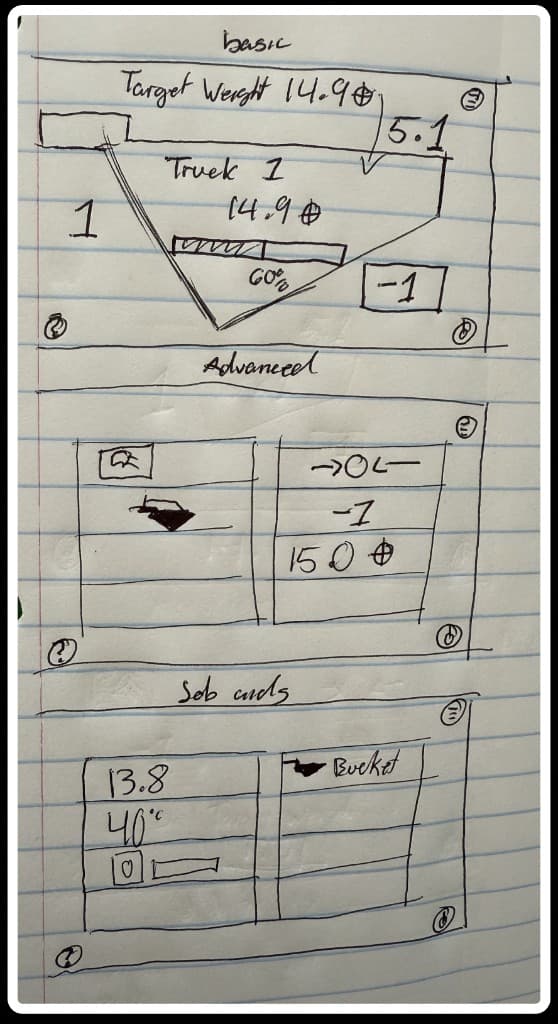 basic
Target Weight 14.9
5.1
Truck 1
14.9
1
60%
-1
?
Advanced
→0←
-1
15.0
?
Job cards
13.8
Bucket
40°c
0
?